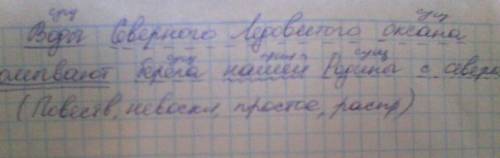 сущ сущ
Воды Северного Ледовитого океана
омывают берега нашей Родины с севера
(Повеств, невоскл, простое, распр)